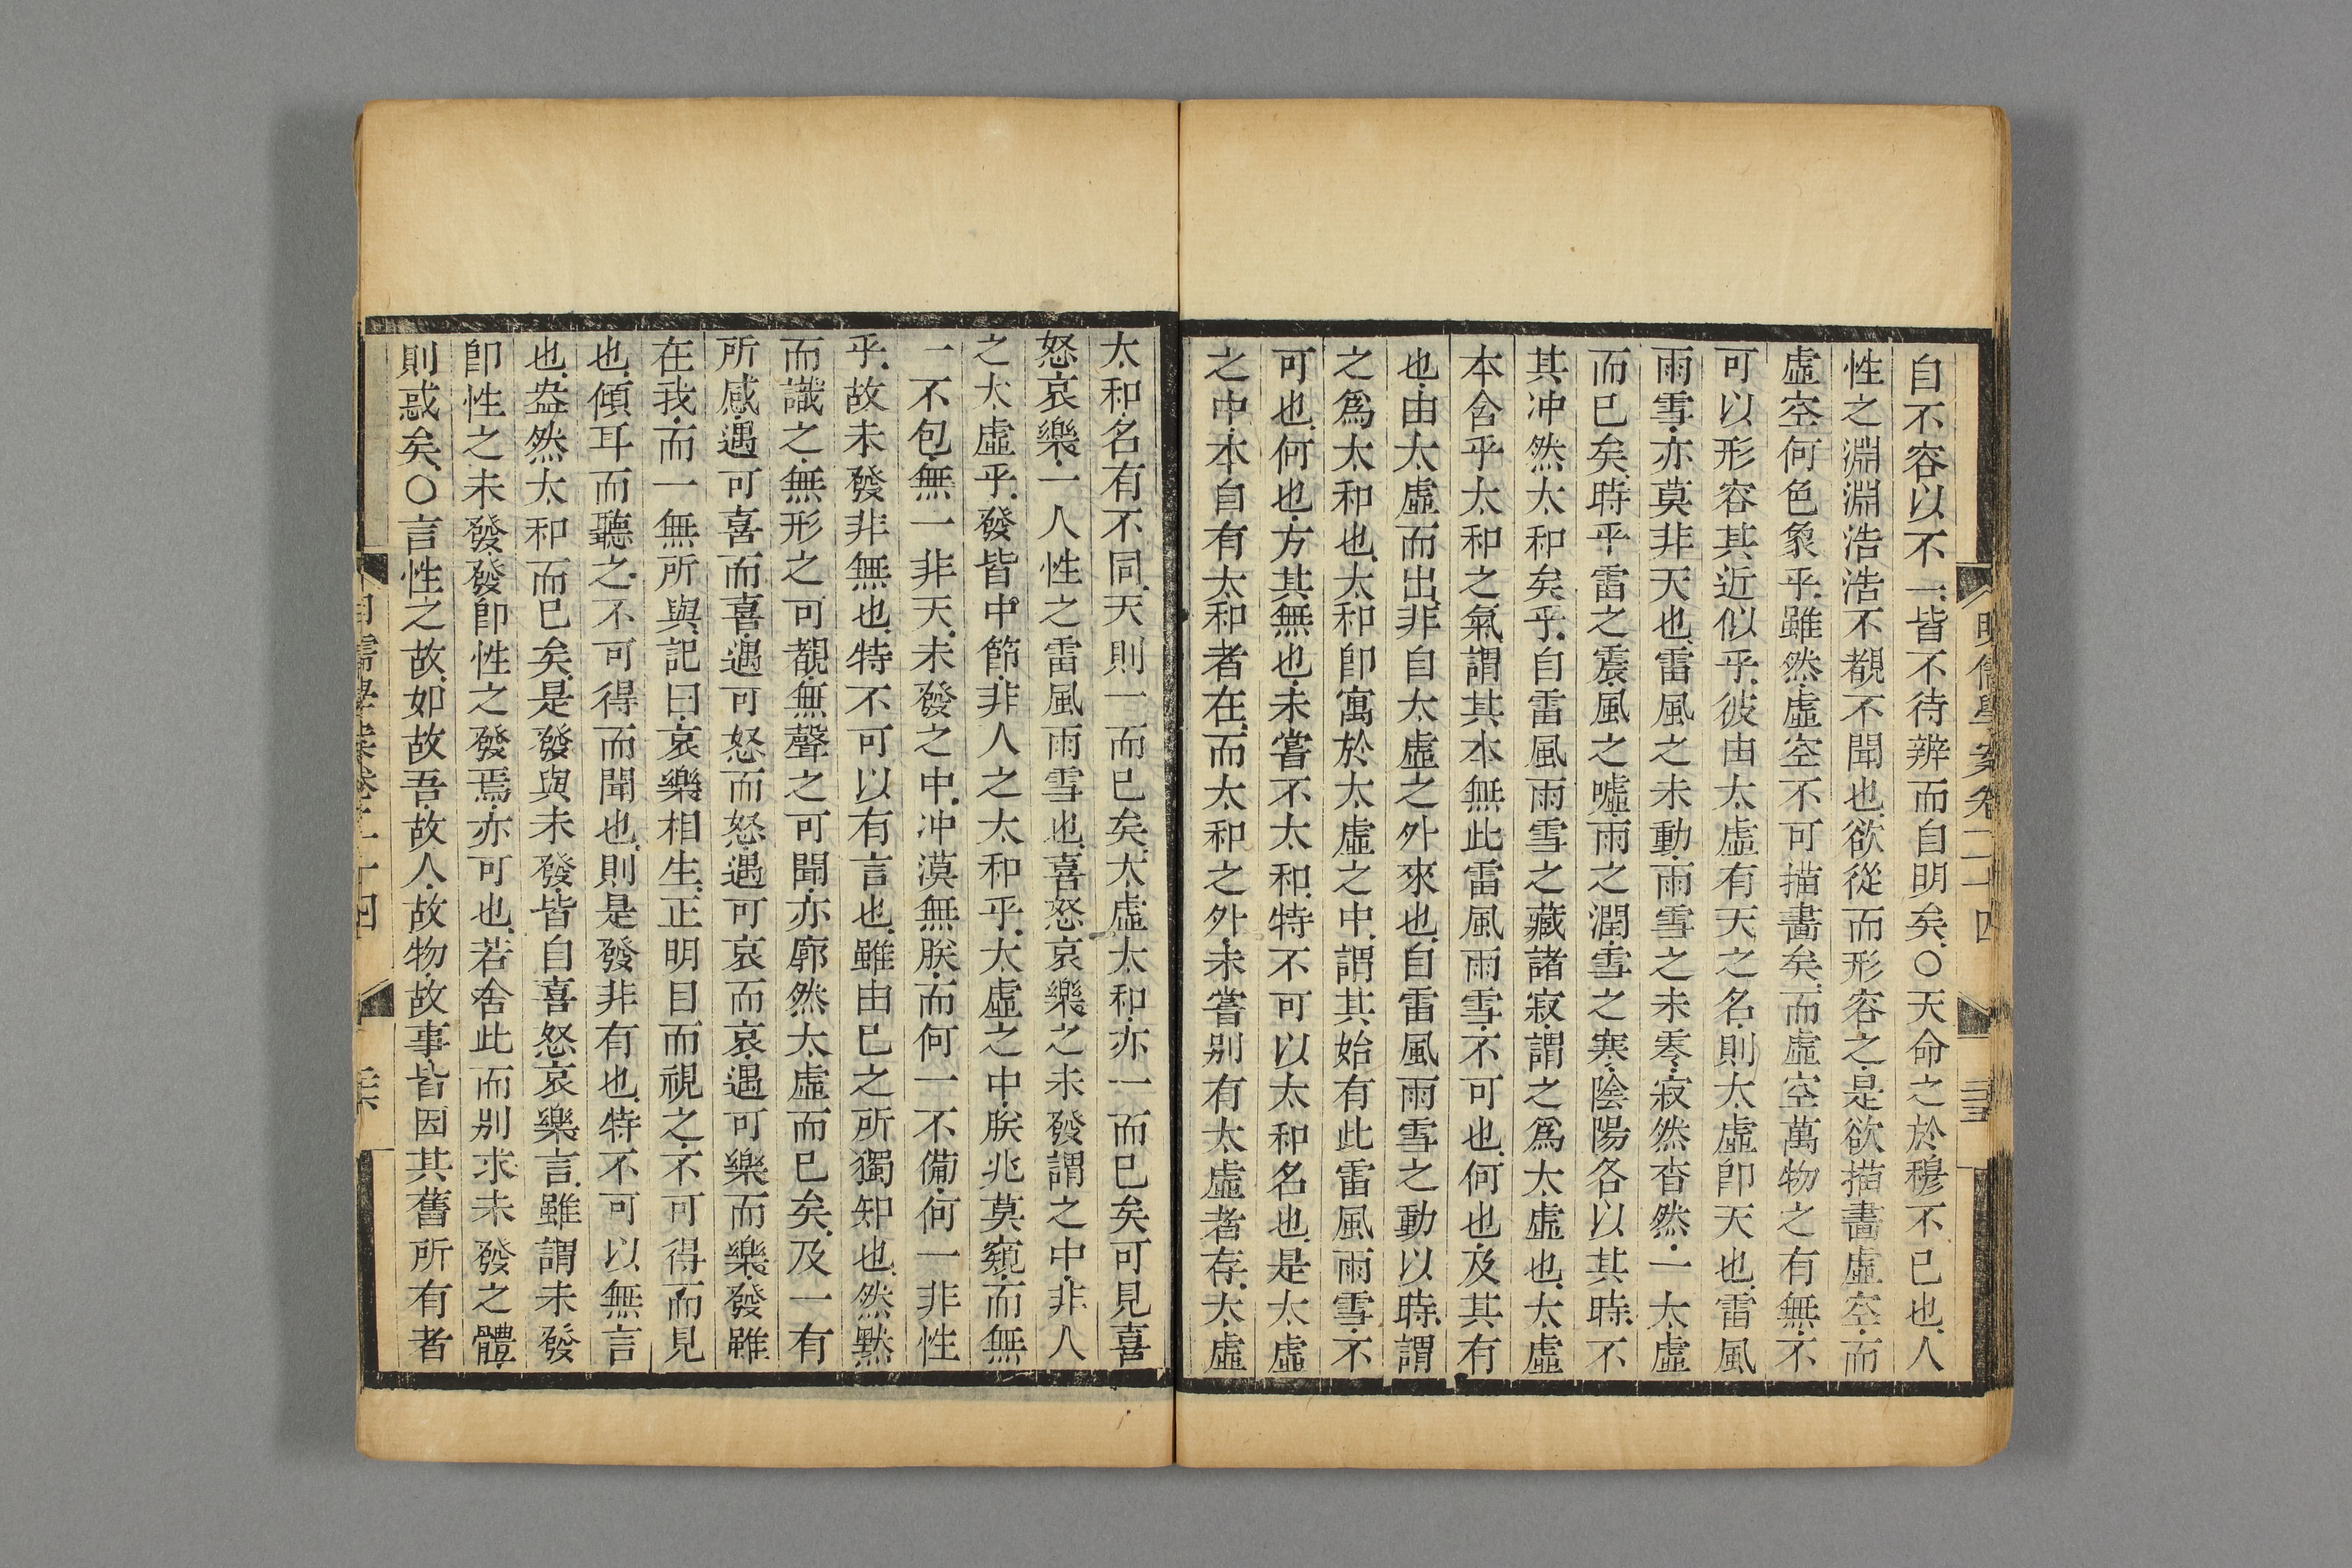 明儒學案卷二十四
自不容以不一皆不待辨而自明矣〇天命之於穆不已也人
性之淵淵浩浩不覩不聞也欲從而形容之是欲描畵虛空而
虛空何色象乎雖然虛空不可描畵矣而虛空萬物之有無不
可以形容其近似乎彼由太虛有天之名則太虛卽天也雷風
雨雪亦莫非天也雷風之未動雨雪之未零寂然杳然一太虛
而已矣時乎雷之震風之噓雨之潤雪之寒陰陽各以其時不
其冲然太和矣乎自雷風雨雪之藏諸寂謂之爲太虛也太虛
本含乎太和之氣謂其本無此雷風雨雪不可也何也及其有
也由太虛而出非自太虛之外來也自雷風雨雪之動以時謂
之爲太和也太和卽寓於太虛之中謂其始有此雷風雨雪不
可也何也方其無也未嘗不太和特不可以太和名也是太虛
之中本自有太和者在而太和之外未嘗別有太虛者存太虛
太和名有不同天則一而已矣太虛太和亦一而已矣可見喜
怒哀樂一人性之雷風雨雪也喜怒哀樂之未發謂之中非人
之太虛乎發皆中節非人之太和乎太虛之中朕兆莫窺而無
一不包無一非天未發之中冲漠無朕而何一不備何一非性
乎故未發非無也特不可以有言也雖由已之所獨知也然默
而識之無形之可覩無聲之可聞亦廓然太虛而已矣及一有
所感遇可喜而喜遇可怒而怒遇可哀而哀遇可樂而樂發雖
在我而一無所與記曰哀樂相生正明目而視之不可得而見
也傾耳而聽之不可得而聞也則是發非有也特不可以無言
也盎然太和而已矣是發與未發皆自喜怒哀樂言雖謂未發
卽性之未發發卽性之發焉亦可也若舍此而別求未發之體
則惑矣〇言性之故如故吾故人故物故事皆因其舊所有者